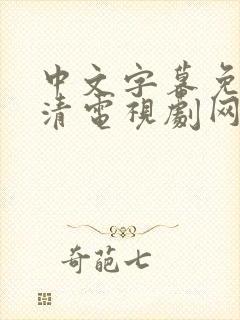 中文字幕免
清电視劇网
奇葩七